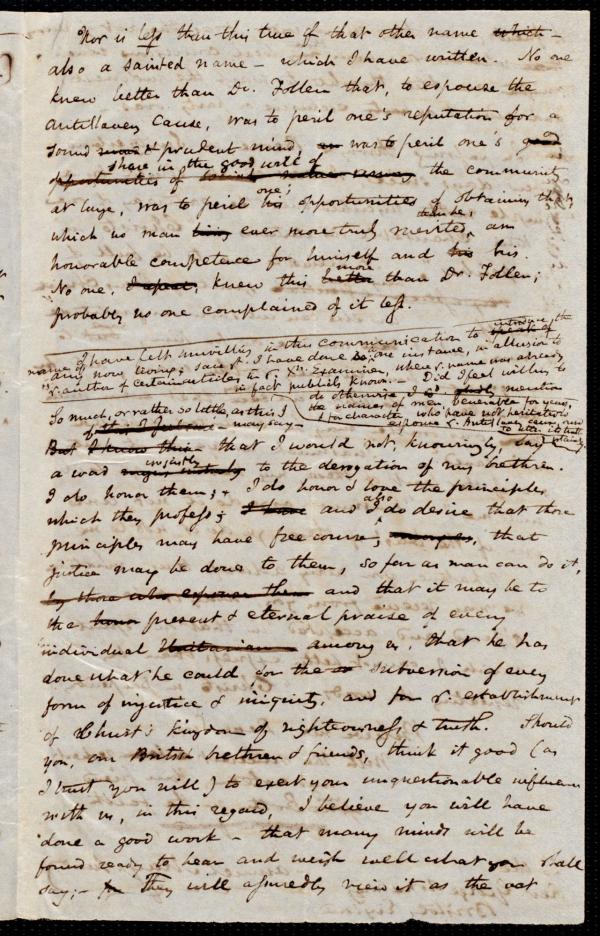 Nor is less than this true of that other name which –
also a sainted name – which I have written. No one
knew better than Dr. Follen that, to espouse the
Antislavery Cause, was to peril one's reputation for a
sound & prudent mind, was to peril one's good
share in the good will of
opportunities of the community
at large, was to peril his one's opportunities of obtaining that,
which no man living ever more truly merited, than he, an
honorable competence for himself and his his.
No one, I repeat, knew this better more than Dr. Follen;
probably no one complained of it less.
I have felt unwilling in this communication to speak of introduce the
name of any now living; save I have done so, in one instance, in allusion to
r. author of certain articles in r. Xn. Examiner, where r. name was already
in fact publicly known. – Did I feel willing to
do otherwise, I could mention
the names of men, venerable for years,
& for character, who have not hesitated to
espouse r. Antislavery cause, and
So much, or rather so little, as this I
may say –
But I know this – that I would not, knowingly, say
a word unjustly to the derogation of my brethren.
I do honor them; & I do honor & love the principles
which they profess; I have and I also do desire that those
principles may have free course; that
justice may be done to them, so far as man can do it,
by those who espouse them and that it may be to
the honor present & eternal praise of every
individual Unitarian among us, that he has
done what he could, for the subversion of every
form of injustice & iniquity, and for r. establishment
of Christ's kingdom of righteousness & truth. Should
you, our British brethren & friends, think it good (as
I trust you will) to exert your unquestionable influence
with us, in this regard, I believe you will have
done a good work – that many minds will be
found ready to hear and weigh well what you shall
say; – They will assuredly view it as the not